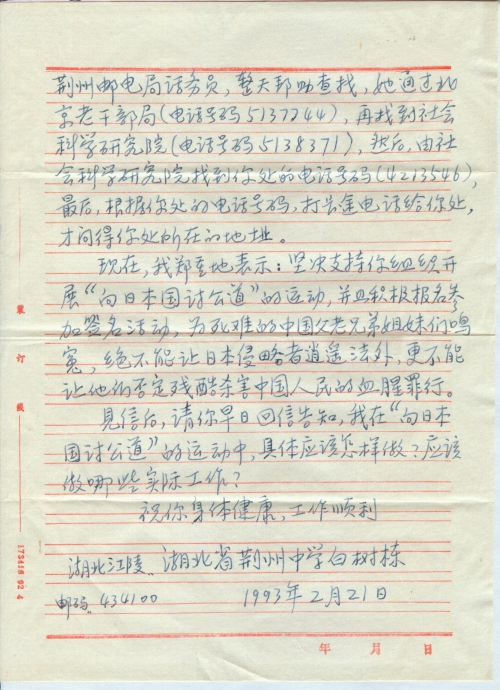 荆州邮电局话务员，整天帮助查找，她通过北
京老干部局（电话号码5137244），再找到社会
科学研究院（电话号码5138371），然后，由社
会科学研究院找到你处的电话号码（4213546），
最后，根据你处的电话号码，打长途电话给你处，
才问得你处所在的地址。
现在，我郑重地表示：坚决支持你组织开
展“向日本国讨公道”的运动，并且积极报名参
加签名活动，为死难的中国父老兄弟姐妹们鸣
冤，绝不能让日本侵略者逍遥法外，更不能
让他们否定残酷杀害中国人民的血腥罪行。
见信后，请你早日回信告知，我在“向日本
国讨公道”的运动中，具体应该怎样做？应该
做哪些实际工作？
祝你身体健康，工作顺利
湖北江陵，湖北省荆州中学白树栋
邮码：434100 1993年2月21日
年 月 日
装
订
线
173416·92·4